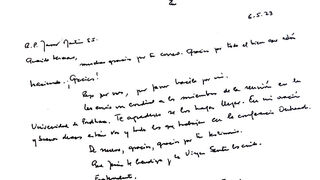 6.5.23
R.P. James Martin S.J.
Querido hermano,
muchas gracias por tu correo. Gracias por todo el bien que estás
haciendo. ¡Gracias!
Rezo por vos, por favor hacelo por mí.
les envío un cordial a los miembros de la reunión en la
Universidad de Fordham. Te agradezco se los hagas llegar. En mi oración
y buenos deseos a todos los que trabajan en la conferencia Outreach.
De nuevo, gracias, gracias por tu testimonio.
Que Jesús te bendiga y la Virgen Santa los cuide.
Fraternalmente,